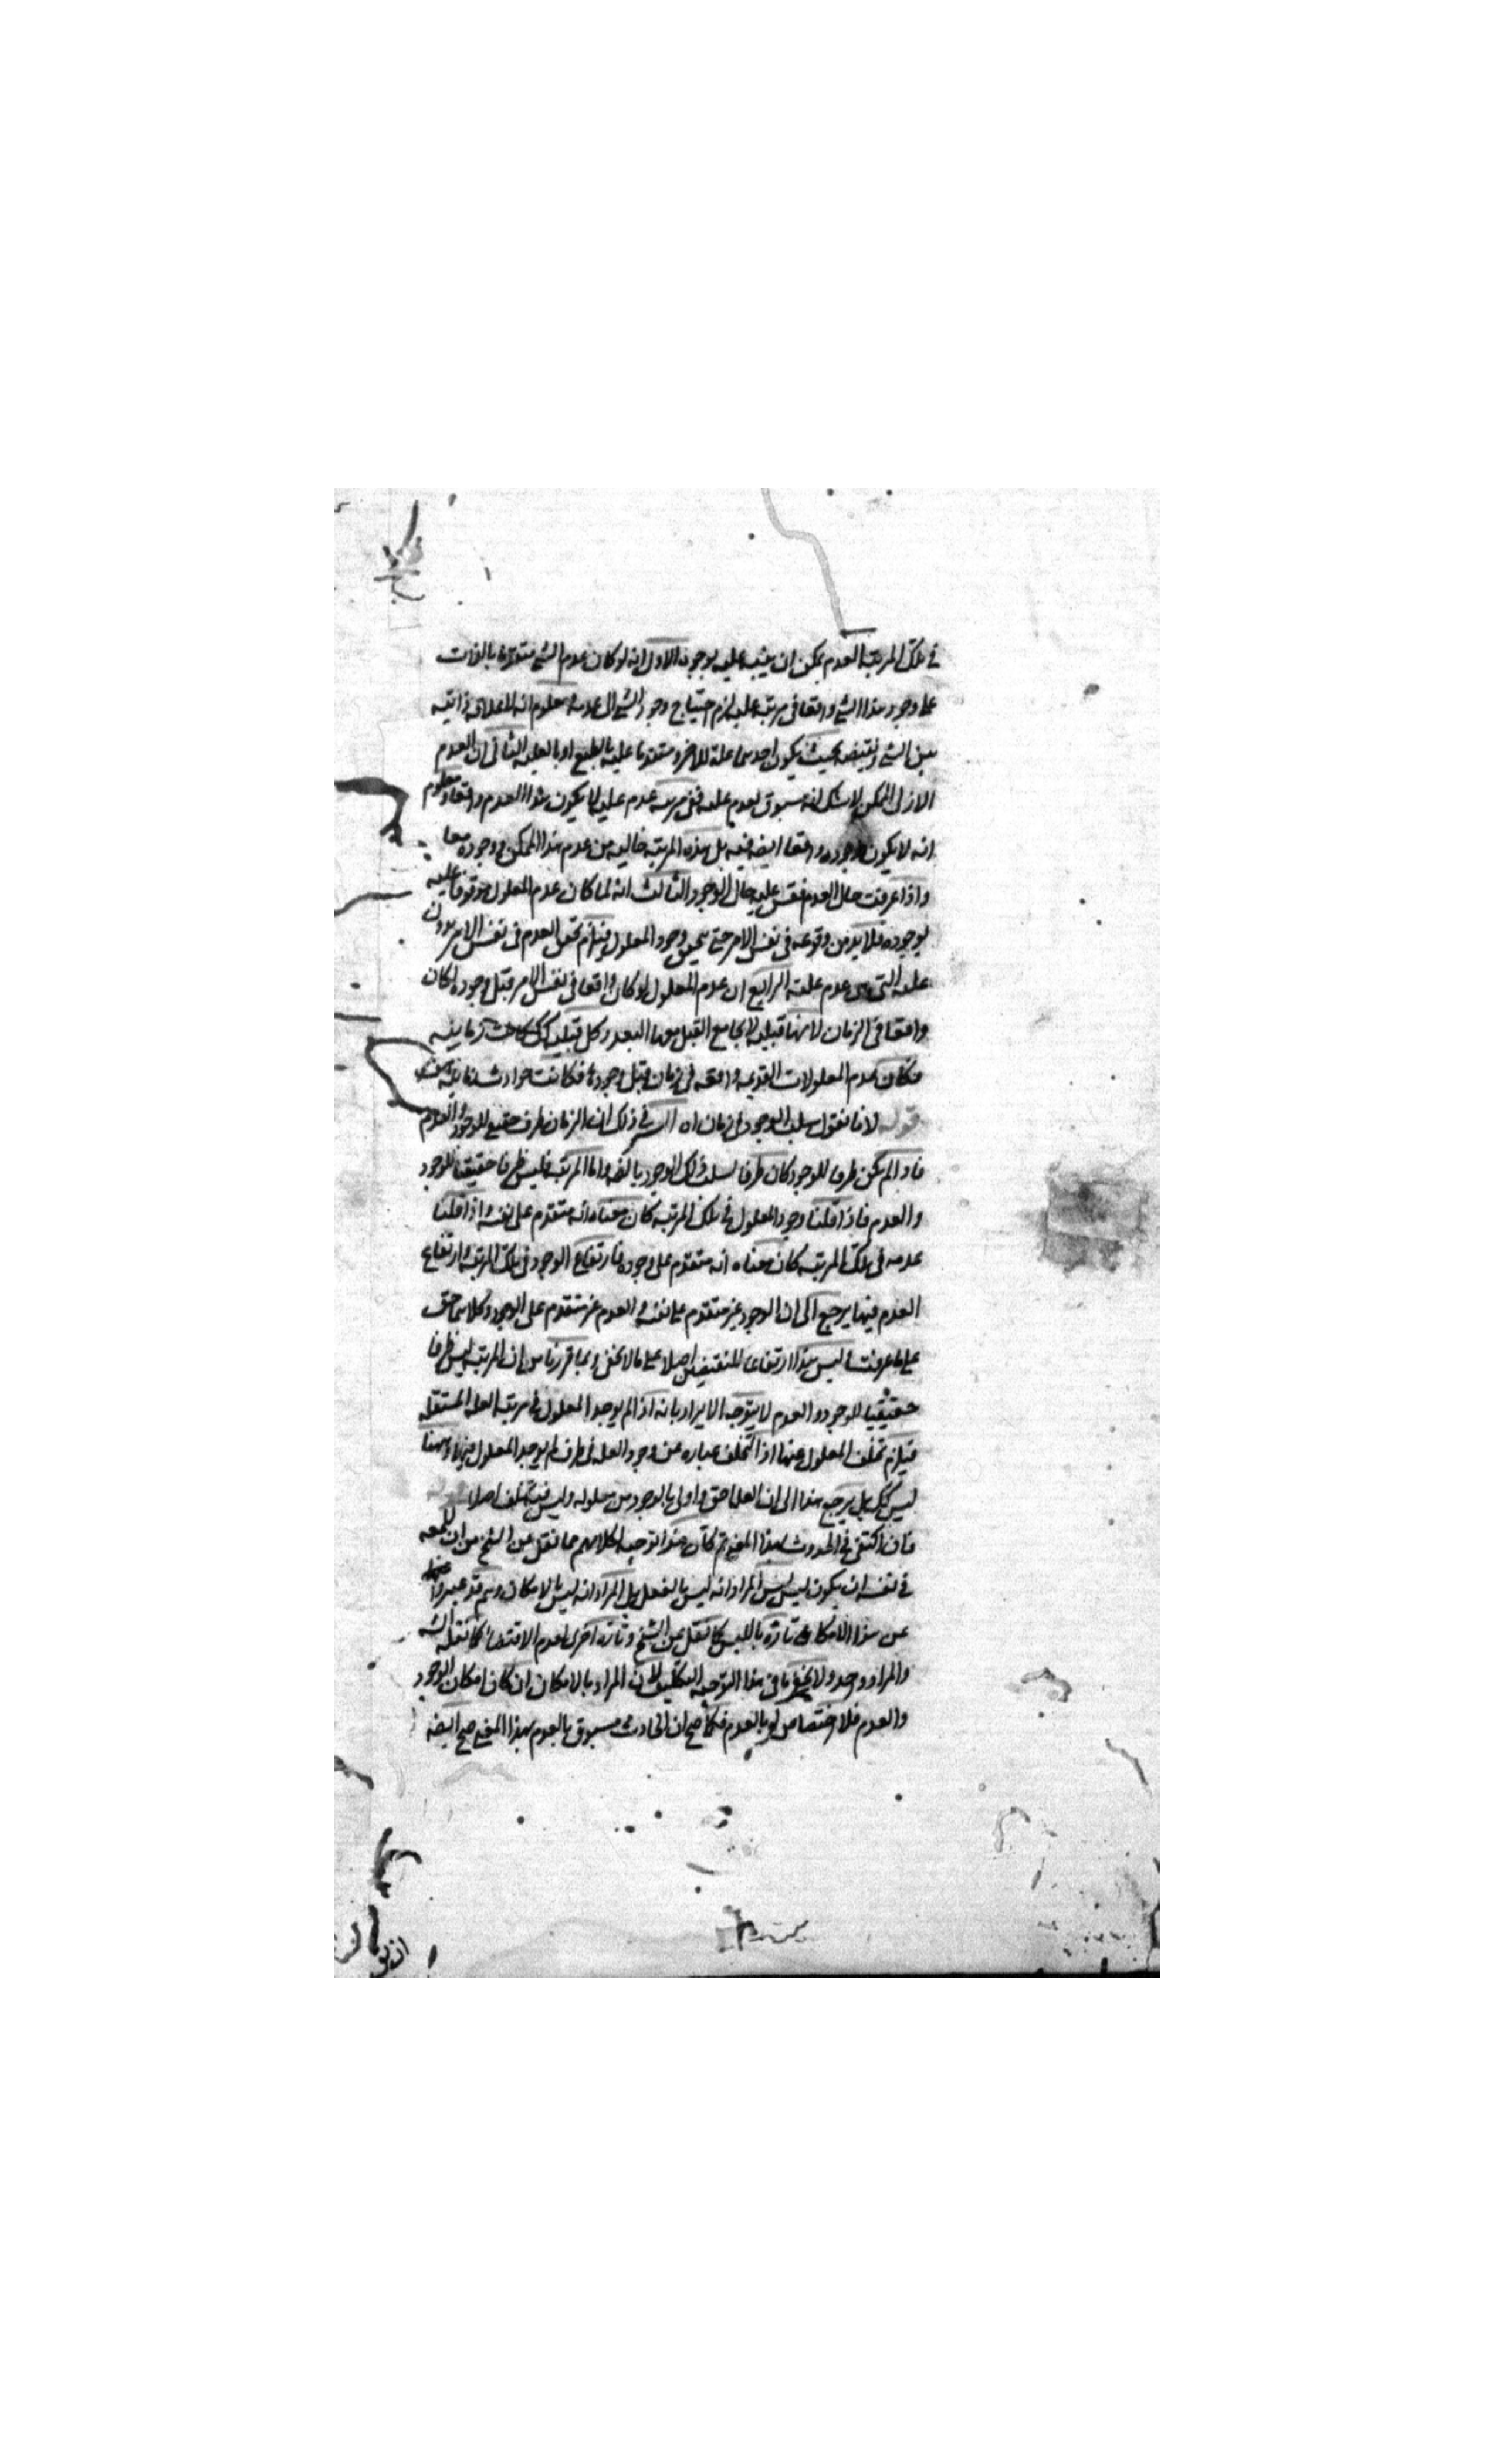 في تلك المرتبة العدم يمكن ان ينبه عليه بوجوه الاول انه لو كان عدم الشي متقدما بالذات
على وجود هذا الشي واقعا في مرتبة عليه لزم احتياج وجود الشي الى عدمه ومعلوم انه لا علاقة ذاتيه
بين الشي ونقيضه بحيث يكون احدهما علة للاخر ومتقدما عليه بالطبع او بالعليه الثاني ان العدم
الازلى للممكن لا شك انه مسبوق بعدم علته ففي مرتبه عدم علته لا يكون هذا العدم واقعا ومعلوم
انه لا يكون وجوده واقعا ايضه فيه بل هذه المرتبه خاليه من عدم هذا الممكن ووجوده معا
واذا عرفت حال العدم فقس عليه حال الوجود الثالث انه لما كان عدم المعلول موقوفا عليه
لوجوده فلا بد من وقوعه في نفس الامر حتى يتحقق وجود المعلول فيلزم تحقق العدم في نفس الامر بدون
علته التي هي عدم علته الرابع ان عدم المعلول لو كان واقعا في نفس الامر قبل وجوده لكان
واقعا في الزمان لانها قبليه لا يجامع القبل معها البعد وكل قبليه كك كانت زمانيه
فكان عدم المعلولات القديمه واقعه في زمان قبل وجودها فكانت حوادث زمانيه هف
قوله لانا نقول سلب الوجود في زمان اه السر في ذلك ان الزمان ظرف حقيقي للوجود والعدم
فاذا لم يكن ظرفا للوجود كان ظرفا لسلب ذلك الوجود بالضروره واما المرتبه فليس ظرفا حقيقيا للوجود
والعدم فاذا قلنا وجود المعلول في تلك المرتبه كان معناه انه متقدم على نفسه واذا قلنا
عدمه في تلك المرتبه كان معناه انه متقدم على وجوده فارتفاع الوجود في تلك المرتبه وارتفاع
العدم فيها يرجع الى ان الوجود غير متقدم على نفسه والعدم غير متقدم على الوجود وكلاهما حق
على ما عرفت وليس هذا ارتفاعا للنقيضين اصلا على ما لا يخفى وبما قررنا من ان المرتبه ليس ظرفا
حقيقيا للوجود والعدم لا يتوجه الايراد بانه اذا لم يوجد المعلول في مرتبه العله المستقله
فيلزم تخلف المعلول عنها اذ التخلف عباره عن وجود العله في ظرف لم يوجد المعلول فيها وههنا
ليس كك بل يرجع هذا الى ان العله احق واولى بالوجود من معلوله وليس فيه تخلف اصلا
فان اكتفى في الحدوث بهذا المعنى تم كان هذا توجيه لكلامهم مما نقل عن الشيخ من ان للمعلول
في نفسه ان يكون ليس ليس المراد انه ليس بالفعل بل المراد انه ليس بالامكان وهم قد عبروا
عن هذا الامكان تارة بالليس كما نقل عن الشيخ وتاره اخرى لعدم الاقتضا كما نقله الش
والمراد واحد ولا يخفى ما في هذا التوجيه التكليف لان المراد بالامكان ان كان امكان الوجود
والعدم فلا اختصاص له بالعدم فكما صح ان الحادث مسبوق بالعدم بهذا المعنى صح ايضه